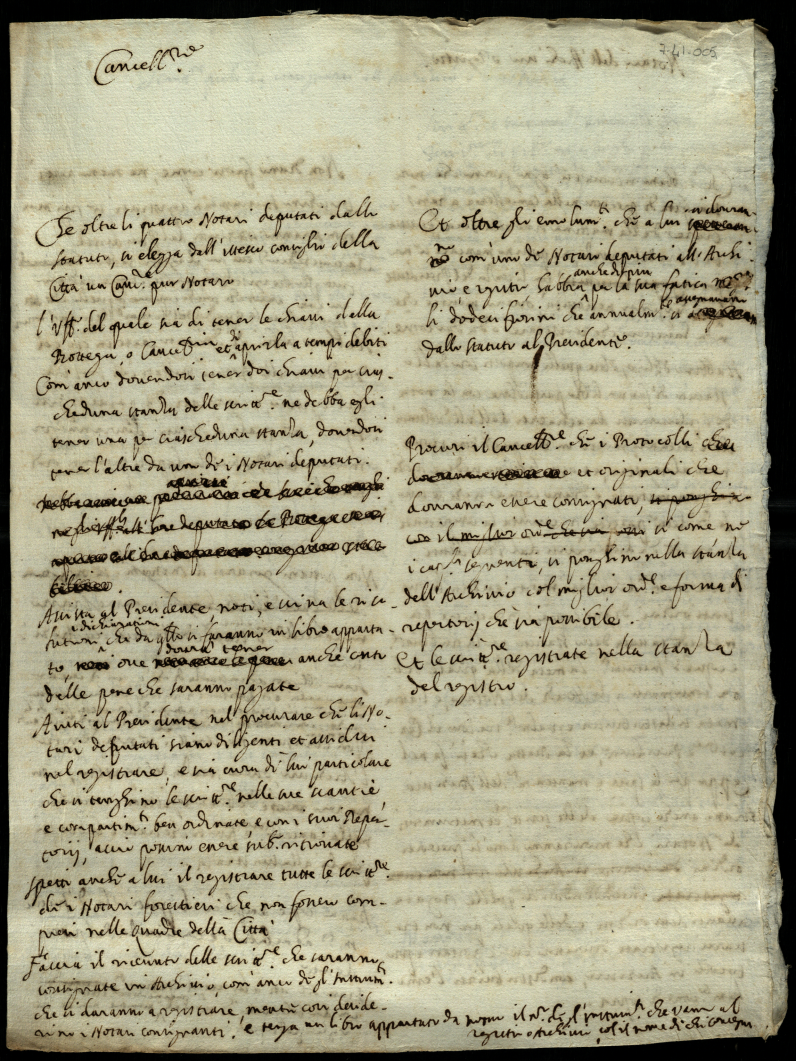 7-41-005
Cancell.re
Se oltre li quattro Notari deputati dallo
statuto, si elegga dall'istesso consiglio della
Città un Canc.re pur Notaro
l'Uff.o del quale sia di tener le chiavi della
Bottega, o et aprirla a tempi debiti
Com'anco dovendosi tener doi chiavi per cias-
cheduna stanza delle scritt.re ne debba egli
tener una per ciascheduna stanza, dovendosi
tener l'altre da uno de i Notari deputati.
Assista al Presidente noti, e scriva le riso-
lutioni e dichiarationi che da q.llo si faranno in libro apparta-
to, ove dovrà tener anche conto
delle pene che saranno pagate
Aiuti al Presidente nel procurare che li No-
tari deputati siano diligenti et assidui
nel registrare, e sia cura di lui particolare
che si tenghino le scritt.re nelle sue scantie
e compartim.ti ben ordinate, e con i suoi Reper-
torij, acciò possino essere sub.o ritrovate
Spetti anche a lui il registrare tutte le scritt.re
de i Notari forestieri che non fossero com-
presi nelle quadre della Città
Faccia il ricevuto delle scritt.re che saranno
consignate in Archivio, com'anco de gl'Instrum.ti
che si daranno a registrare, mentre così deside-
rino i Notari consignanti, e tenga un libro appartato da il n.o de gl'instrum.ti che vanno al
registro o Archivio, col il nome di chi consegna
Et oltre gli emolum.ti che a lui si dovran-
no com'uno de Notari deputati all'Archi-
vio, e registro, habbia anche di più per la sua fatica
li dodeci fiorini che annualm.te si assegnavano
dallo statuto al Presidente.
Procuri il Cancell.re che i Protocolli
et originali che
dovranno essere consignati, si come ne
i seguenti, si ponghino nella stanza
dell'Archivio col miglior ord.e e forma di
repertorij che sia possibile.
Et le scritt.re registrate nella stanza
del registro.